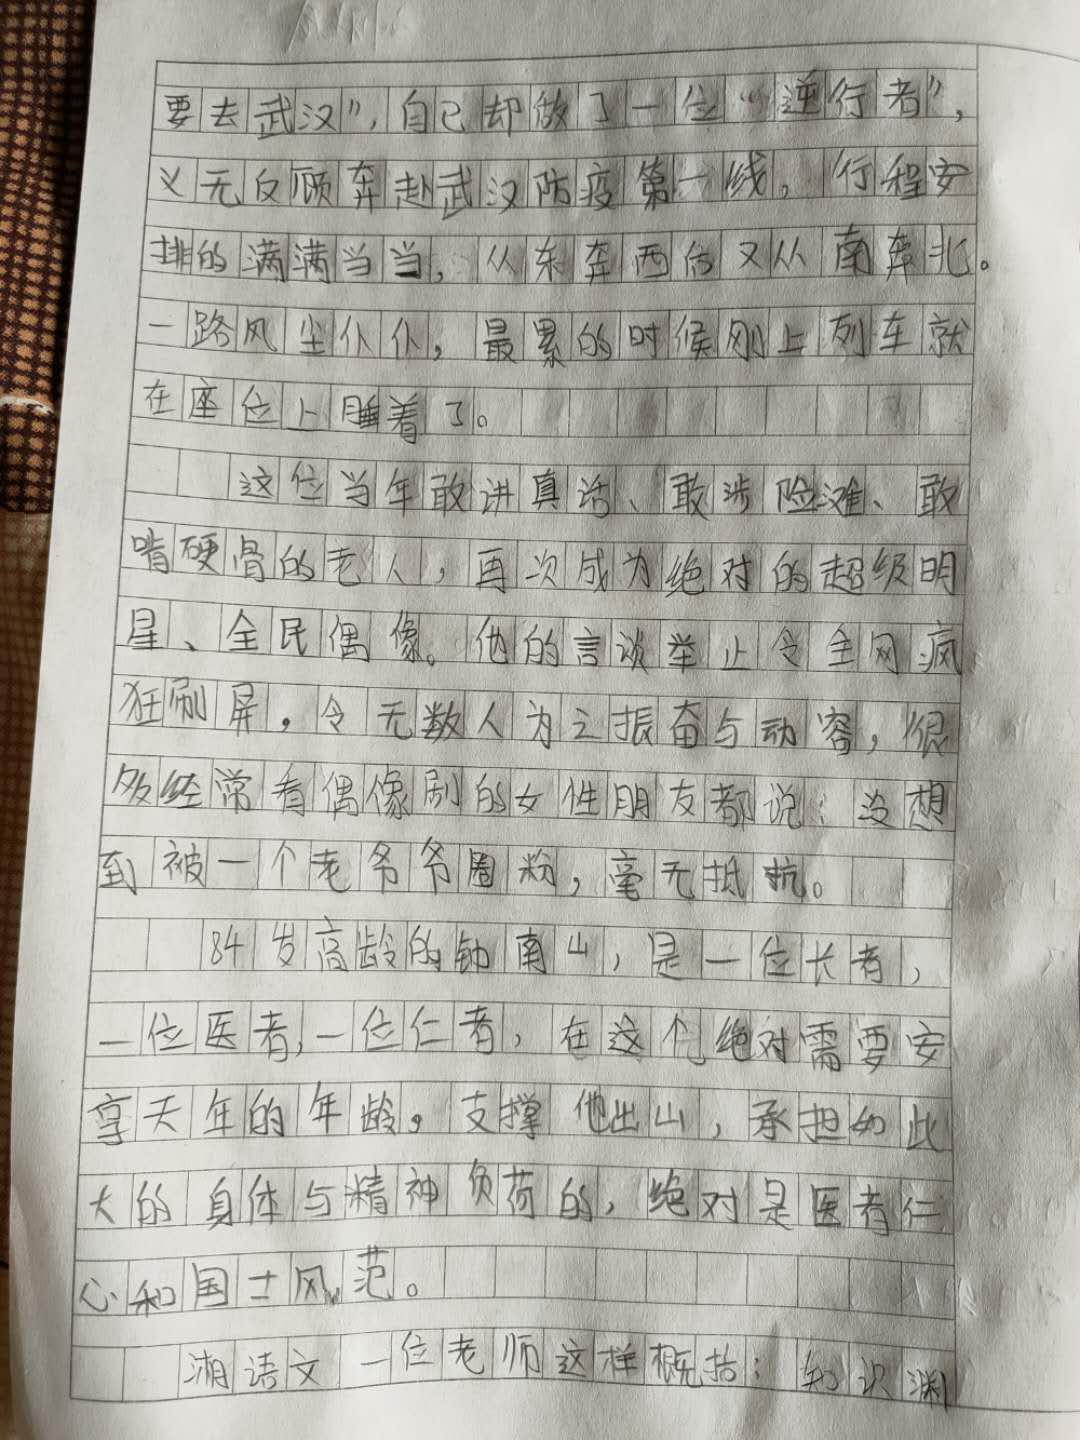 要去武汉”，自已却做了一位“逆行者”，
义无反顾奔赴武汉防疫第一线，行程安
排的满满当当，从东奔西后又从南奔北。
一路风尘仆仆，最累的时候刚上列车就
在座位上睡着了。
这位当年敢讲真话、敢涉险滩、敢
啃硬骨的老人，再次成为绝对的超级明
星、全民偶像。他的言谈举止令全网疯
狂刷屏，令无数人为之振奋与动容，很
多经常看偶像剧的女性朋友都说：没想
到被一个老爷爷圈粉，毫无抵抗。
84岁高龄的钟南山，是一位长者，
一位医者，一位仁者，在这个绝对需要安
享天年的年龄。支撑他出山，承担如此
大的身体与精神负荷的，绝对是医者仁
心和国士风范。
湘语文一位老师这样概括：知识渊